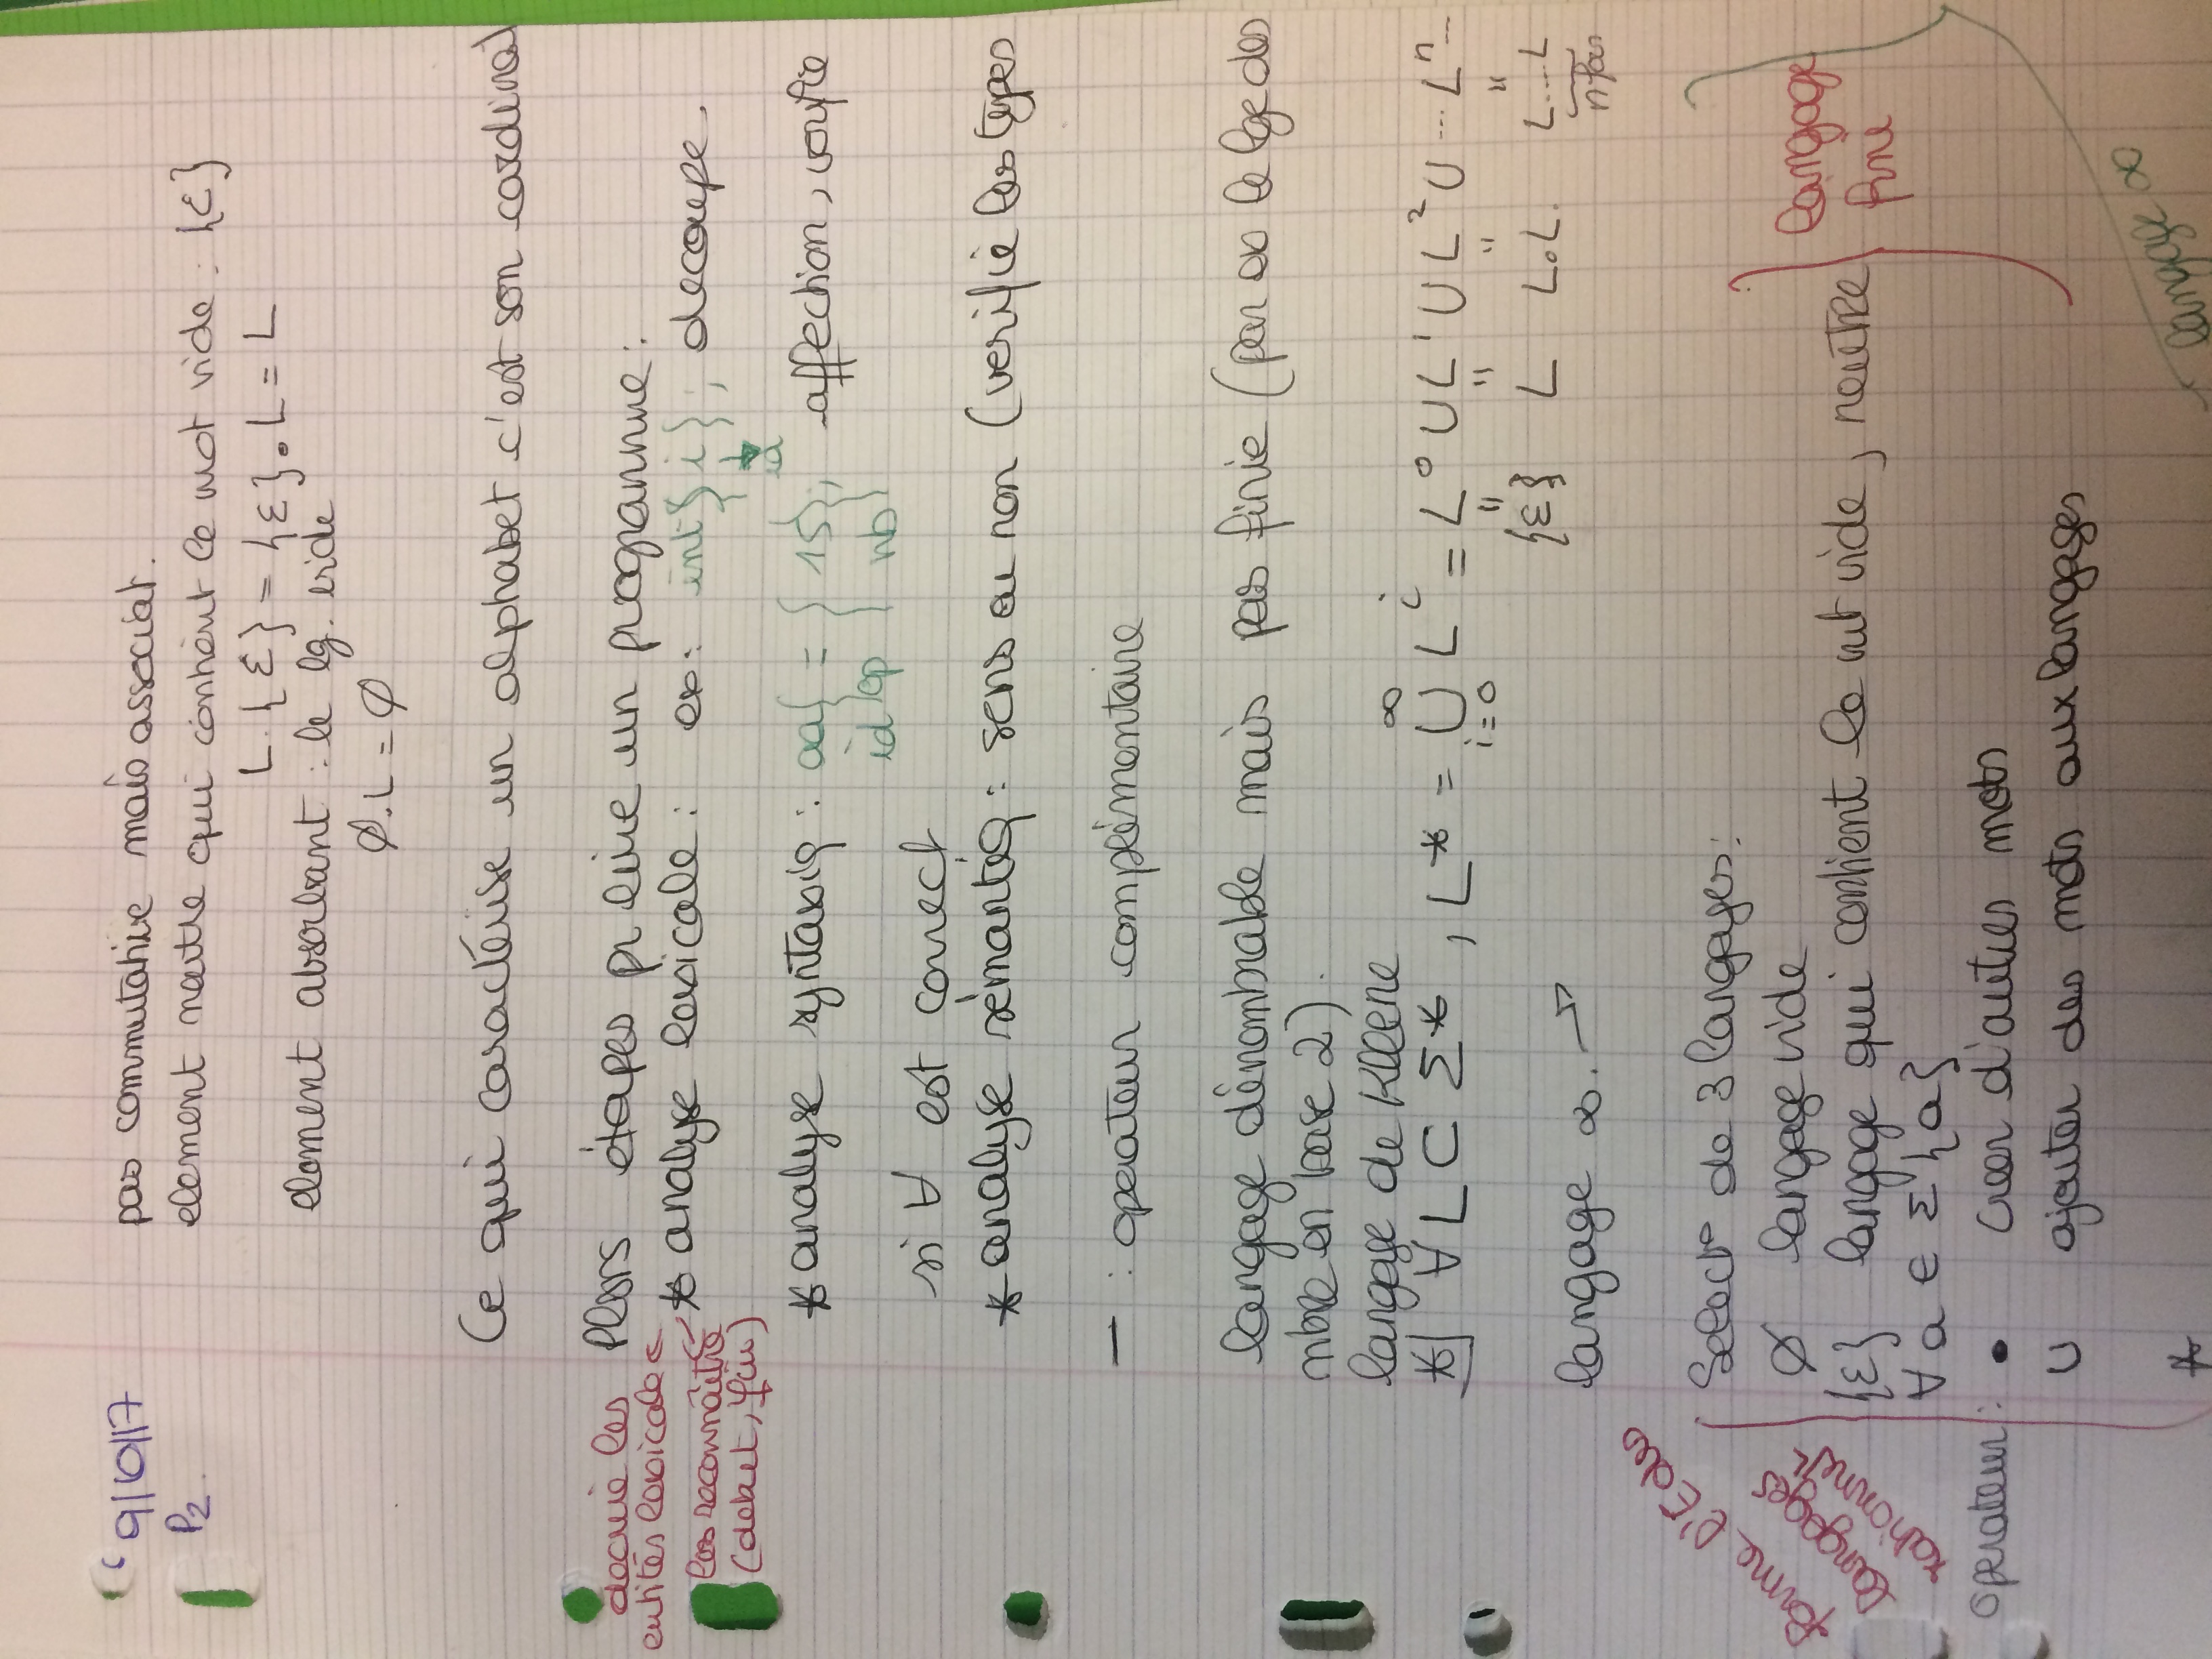 9/10/17
P2.
pas commutative mais associat.
element neutre qui contient le mot vide : {ε}
L.{ε} = {ε}.L = L
element absorbant : le lg. vide
∅.L = ∅
Ce qui caractérise un alphabet c'est son cardinal
Plsrs étapes pr lire un programme :
decrire les
entités lexicales
les reconnaître
(debut, fin)
* analyse lexicale : ex : int} i} ; decoupe.
id
* analyse syntaxiq : aa} = { 15} ; affection, verifie
id op nb
si ∀ est correct
* analyse sémantiq : sens ou non (verifie les types
— : operateur complémentaire
langage dénombrable mais pas finie (par ex le lge des
nbre en base 2).
langage de Kleene
* ∀ L ⊂ Σ* , L* = ∞ ∪ i=0 L^i = L^0 ∪ L^1 ∪ L^2 ∪ ... L^n ...
" " " "
{ε} L L.L. L....L
n fois
langage ∞.
forme l'E des
langages
rationnels
Select° de 3 langages :
∅ langage vide
{ε} langage qui contient le mt vide, neutre
∀ a ∈ Σ {a}
langage
fini
operateur : • creer d'autres mots
∪ ajouter des mots aux langages
*
langage ∞